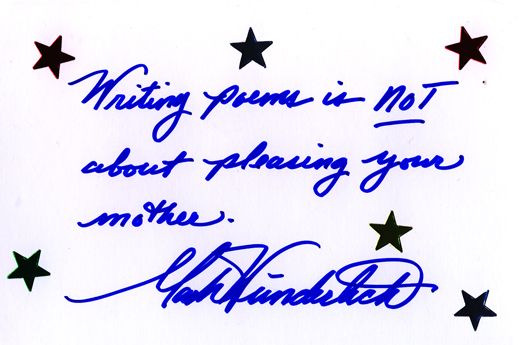 Writing poems is NOT
about pleasing your
mother.
Mark Wunderlich